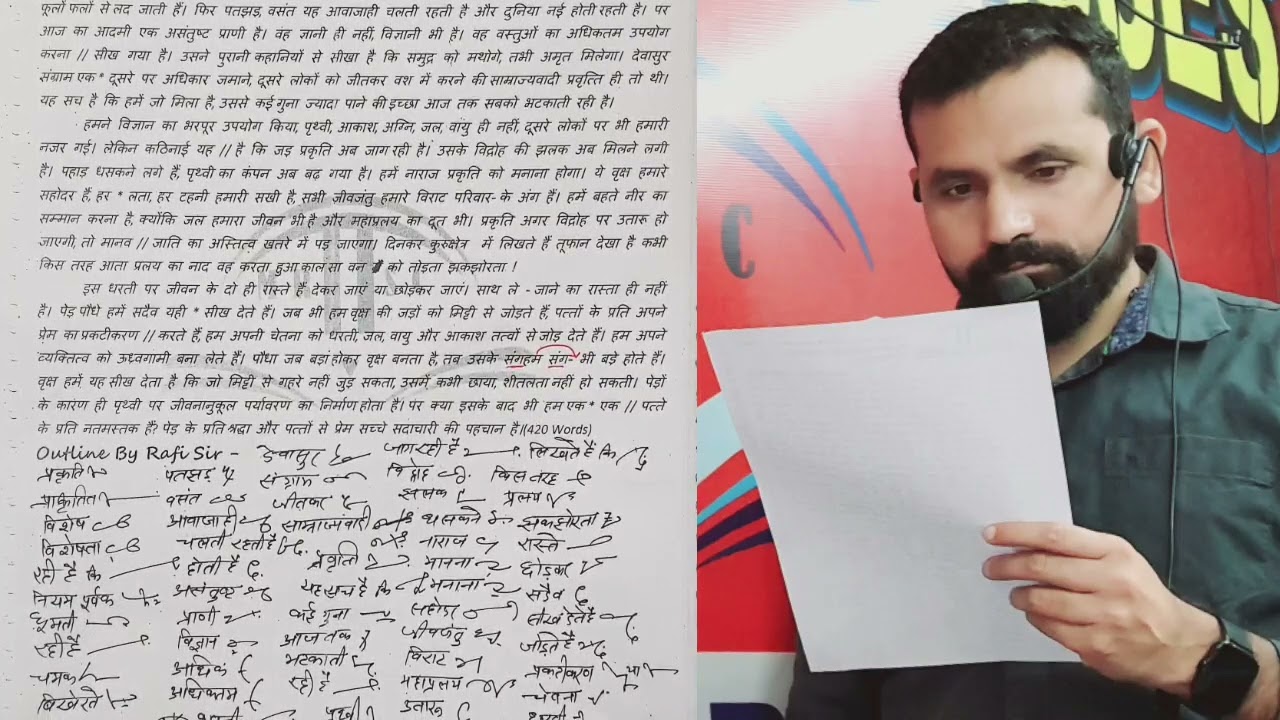 फूलों फलों से लद जाती हैं। फिर पतझड़, वसंत यह आवाजाही चलती रहती है और दुनिया नई होती रहती है। पर
आज का आदमी एक असंतुष्ट प्राणी है। वह ज्ञानी ही नहीं, विज्ञानी भी है। वह वस्तुओं का अधिकतम उपयोग
करना // सीख गया है। उसने पुरानी कहानियों से सीखा है कि समुद्र को मथोगे, तभी अमृत मिलेगा। देवासुर
संग्राम एक * दूसरे पर अधिकार जमाने, दूसरे लोकों को जीतकर वश में करने की साम्राज्यवादी प्रवृत्ति ही तो थी।
यह सच है कि हमें जो मिला है, उससे कई गुना ज्यादा पाने की इच्छा आज तक सबको भटकाती रही है।
हमने विज्ञान का भरपूर उपयोग किया, पृथ्वी, आकाश, अग्नि, जल, वायु ही नहीं, दूसरे लोकों पर भी हमारी
नजर गई। लेकिन कठिनाई यह // है कि जड़ प्रकृति अब जाग रही है। उसके विद्रोह की झलक अब मिलने लगी
है। पहाड़ धसकने लगे हैं, पृथ्वी का कंपन अब बढ़ गया है। हमें नाराज प्रकृति को मनाना होगा। ये वृक्ष हमारे
सहोदर हैं, हर * लता, हर टहनी हमारी सखी है, सभी जीवजंतु हमारे विराट परिवार- के अंग हैं। हमें बहते नीर का
सम्मान करना है, क्योंकि जल हमारा जीवन भी है और महाप्रलय का दूत भी। प्रकृति अगर विद्रोह पर उतारू हो
जाएगी, तो मानव // जाति का अस्तित्व खतरे में पड़ जाएगा। दिनकर कुरुक्षेत्र में लिखते हैं तूफान देखा है कभी
किस तरह आता प्रलय का नाद वह करता हुआ काल सा वन को तोड़ता झकझोरता !
इस धरती पर जीवन के दो ही रास्ते हैं देकर जाएं या छोड़कर जाएं। साथ ले - जाने का रास्ता ही नहीं
है। पेड़ पौधे हमें सदैव यही * सीख देते हैं। जब भी हम वृक्ष की जड़ों को मिट्टी से जोड़ते हैं, पत्तों के प्रति अपने
प्रेम का प्रकटीकरण // करते हैं, हम अपनी चेतना को धरती, जल, वायु और आकाश तत्वों से जोड़ देते हैं। हम अपने
व्यक्तित्व को ऊर्ध्वगामी बना लेते हैं। पौधा जब बड़ा होकर वृक्ष बनता है, तब उसके संगहम संग- भी बड़े होते हैं।
वृक्ष हमें यह सीख देता है कि जो मिट्टी से गहरे नहीं जुड़ सकता, उसमें कभी छाया, शीतलता नहीं हो सकती। पेड़ों
के कारण ही पृथ्वी पर जीवनानुकूल पर्यावरण का निर्माण होता है। पर क्या इसके बाद भी हम एक * एक // पत्ते
के प्रति नतमस्तक हैं? पेड़ के प्रति श्रद्धा और पत्तों से प्रेम सच्चे सदाचारी की पहचान है।(420 Words)
Outline By Rafi Sir - देवासुर जाग रही है लिखते हैं कि
प्रकृति पतझड़ संग्राम विद्रोह किस तरह
प्राकृतिक वसंत जीतकर झलक प्रलय
विशेष आवाजाही साम्राज्यवादी धसकने झकझोरता
विशेषता चलती रहती है प्रवृत्ति नाराज रास्ते
रही है कि होती है यह सच है कि मानना छोड़कर
नियम पूर्वक असंतुष्ट कई गुना मनाना सदैव
घूमती प्राणी आज तक सहोदर सीख देते हैं
रही है विज्ञान भटकाती जीवजंतु जोड़ते हैं
चमक अधिक रही है विराट प्रकटीकरण
बिखेरते अधिकतम पृथ्वी महाप्रलय चेतना
उतारू
C